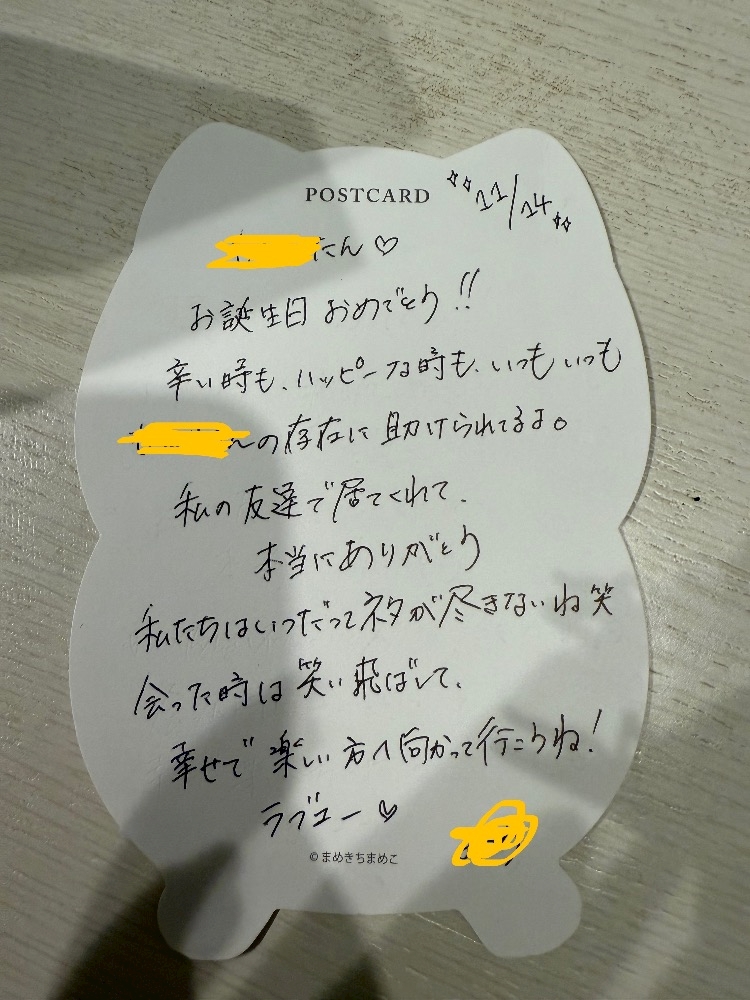 POSTCARD
11/14
たん♡
お誕生日おめでとう!!
辛い時も、ハッピーな時も、いつもいつも
の存在に助けられてるよ。
私の友達で居てくれて、
本当にありがとう
私たちはいつだってネタが尽きないね笑
会った時は笑い飛ばして、
幸せで楽しい方へ向かって行こうね!
ラブユー♡
©まめきちまめこ